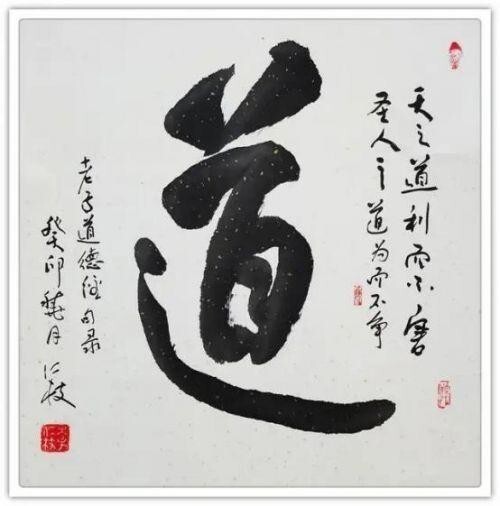 天之道利而不害
圣人之道为而不争
道
老子道德经句录
癸卯月仁枝